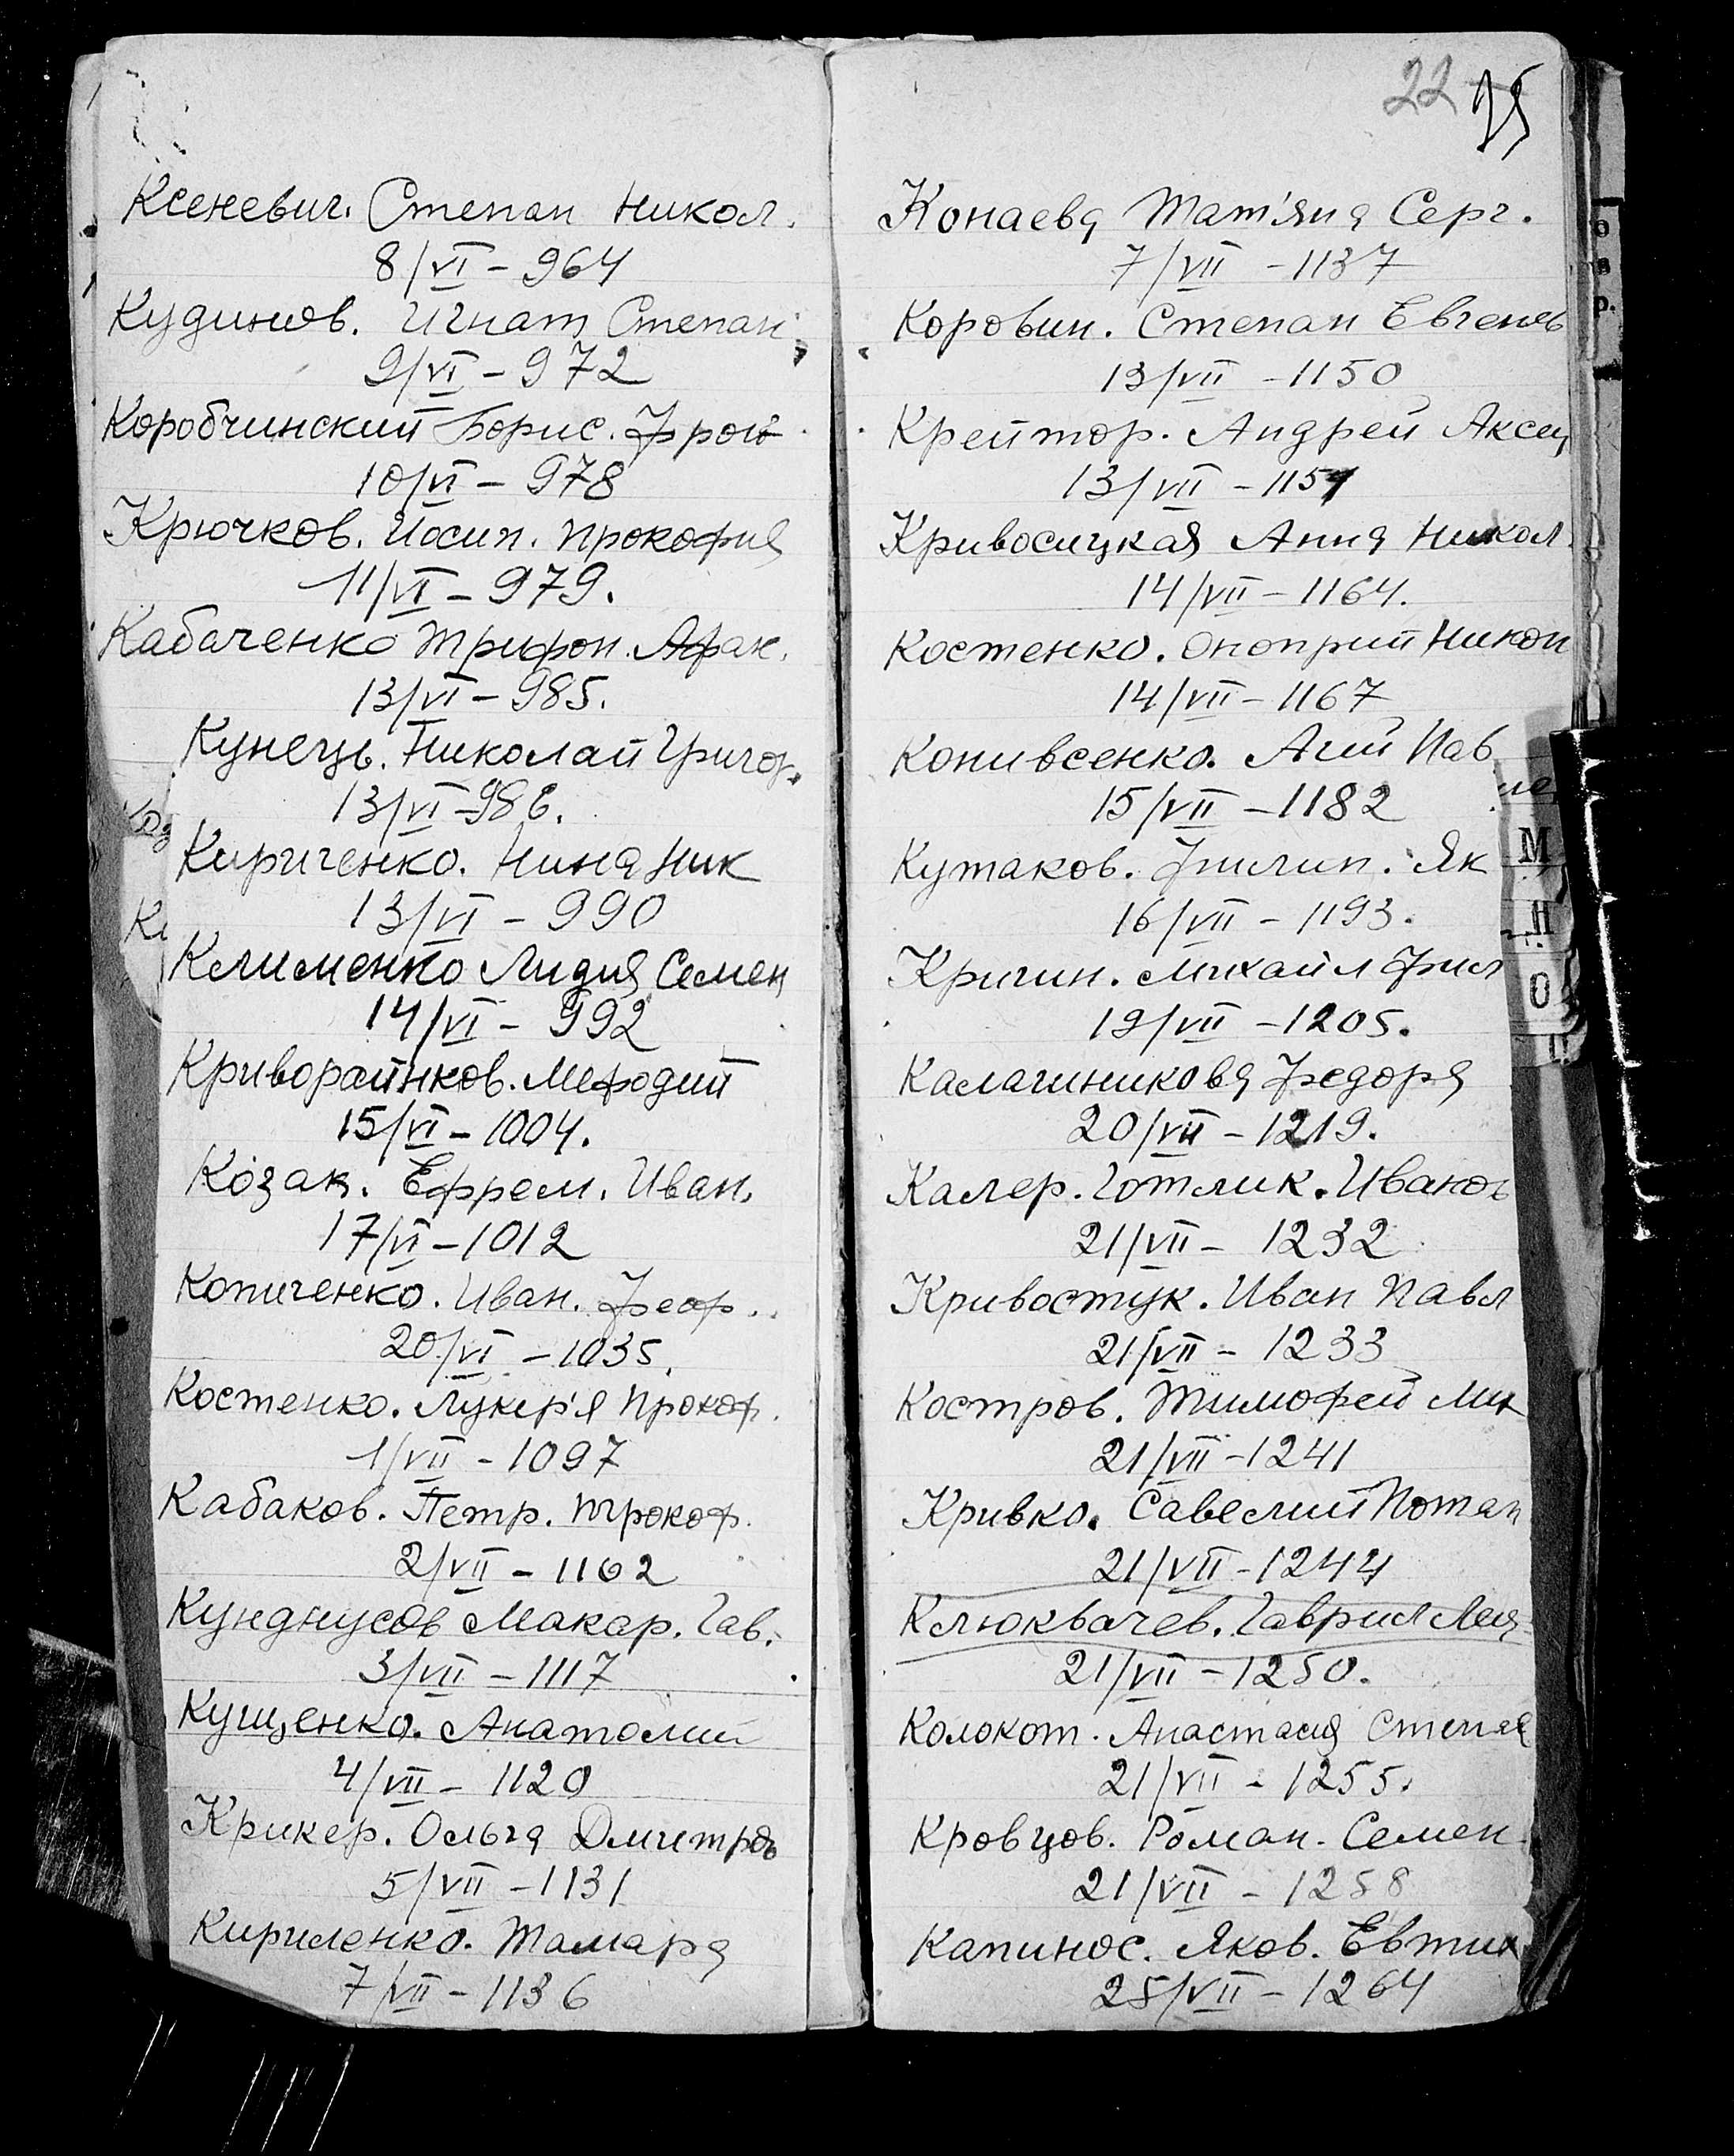 22 75
Ксеневич. Степан Никол.
8/VI - 964
Кудинов. Игнат Степан
9/VI - 972
Коробчинский Борис. Фрои
10/VI - 978
Крючков. Йосип. Прокофия
11/VI - 979.
Кабаченко Трифон. Афан.
13/VI - 985.
Кунець. Николай Григор.
13/VI - 986.
Кириченко. Нина Ник
13/VI - 990
Клименко Лидия Семен
14/VI - 992
Криворайнков. Мефодий
15/VI - 1004.
Козак. Ефрем. Иван.
17/VI - 1012
Копиченко. Иван. Феор.
20/VI - 1035.
Костенко. Лукер'я Прокоф.
1/VII - 1097
Кабаков. Петр. Прокоф.
2/VII - 1102
Макар. Гав.
3/VII - 1117
Кущенко. Анатолий
4/VII - 1120
Крикер. Ольга Дмитров
5/VII - 1131
Кириленко. Тамара
7/VII - 1136
Конаева Тат'яна Серг.
7/VII - 1137
Коровин. Степан Евгень
13/VII - 1150
Крейтор. Андрей Аксен
13/VII - 1151
Кривосицкая Анна Никол.
14/VII - 1164.
Костенко. Оноприй Никон
14/VII - 1167
Конивсенко. Агий Пав
15/VII - 1182
Кутаков. Филип. Як
16/VII - 1193.
Кричин. Михайл Фил
19/VII - 1205.
Калачиникова Федора
20/VII - 1219.
Калер. Готлик. Иванов
21/VII - 1232
Кривостук. Иван Павл
21/VII - 1233
Костров. Тимофей Мих
21/VII - 1241
Кривко. Савелий Потап
21/VII - 1244
Клюквачев. Гаврил Леи
21/VII - 1250.
Колокот. Анастасия Степан
21/VII - 1255.
Кровцов. Роман. Семен.
21/VII - 1258
Капинос. Яков. Евтих
25/VII - 1264